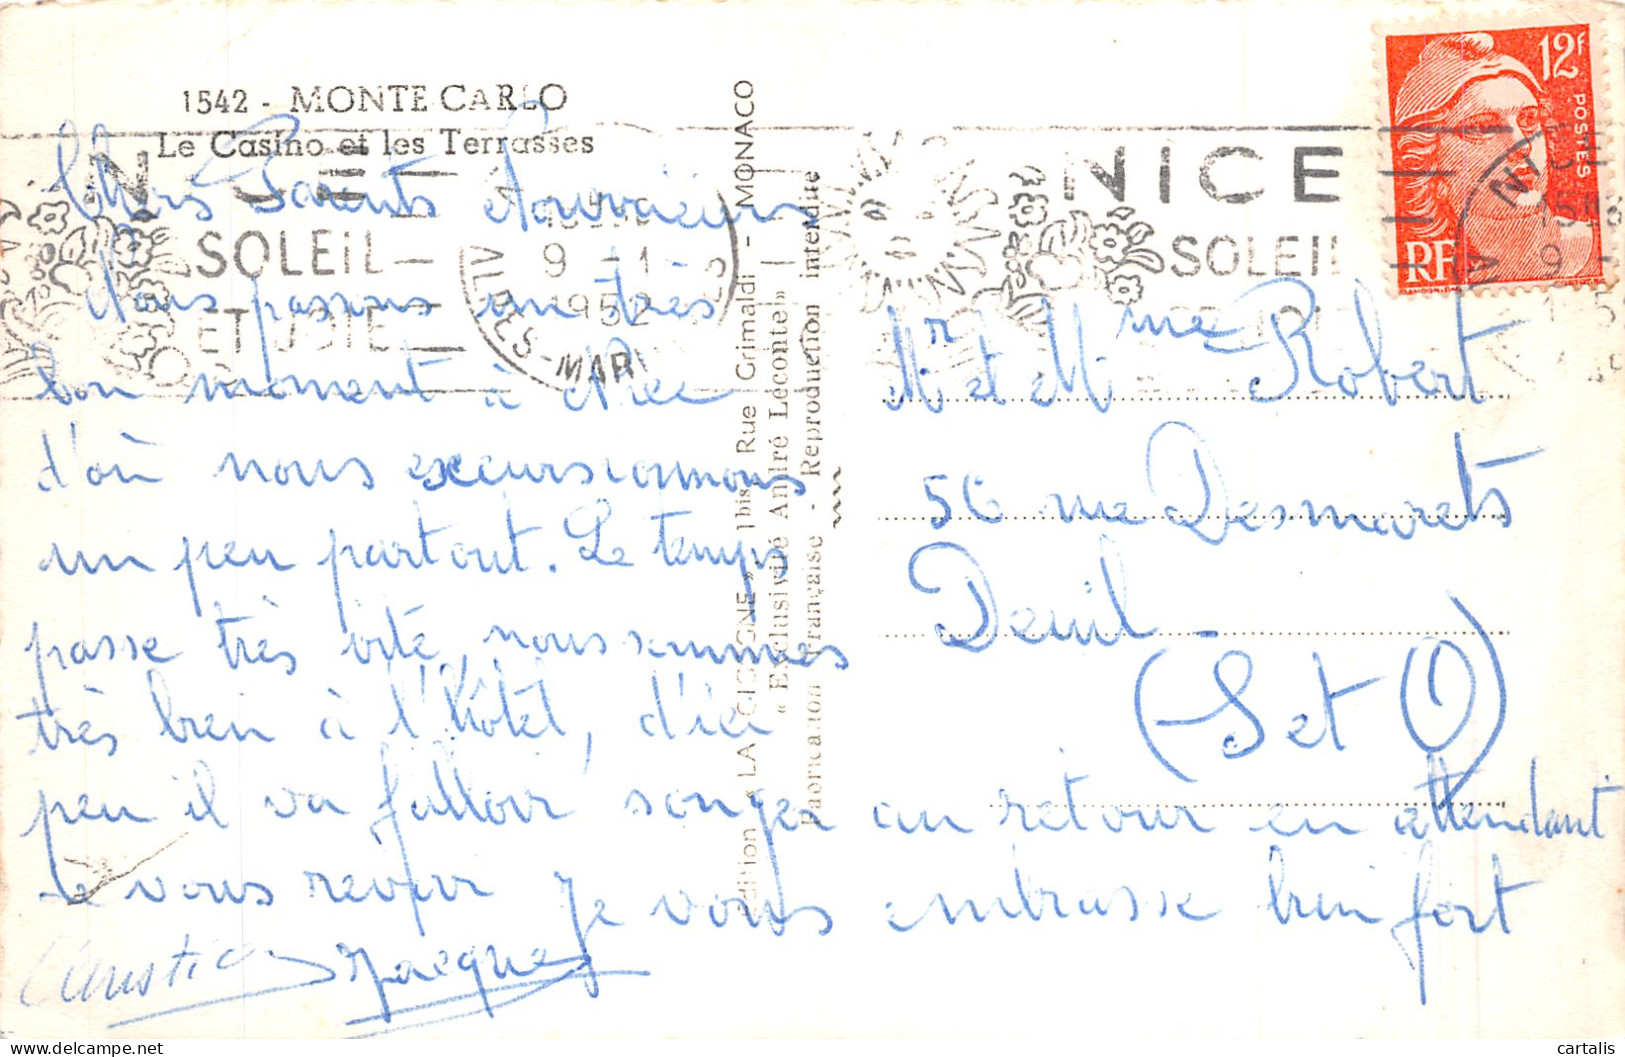 1542 - MONTE CARLO
Le Casino et les Terrasses
Chers Parents
Nous passons un très
bon moment à Nice
d'où nous excursionnons
un peu partout. Le temps
passe très vite, nous sommes
très bien à l'hôtel, d'ici
peu il va falloir songer au retour en attendant
de vous revoir je vous embrasse bien fort
Christian Jacques
Edition « LA CIGOGNE » 1bis Rue Grimaldi - MONACO
« Exclusivité André Leconte »
Fabrication Française - Reproduction interdite
NICE
SOLEIL
ET JOIE
9 - 1
1952
ALPES-MAR
NICE
SOLEIL
12F
POSTES
RF
NICE
9
Mr et Mme Robert
56 rue Desmarets
Deuil
(S et O)
cartalis